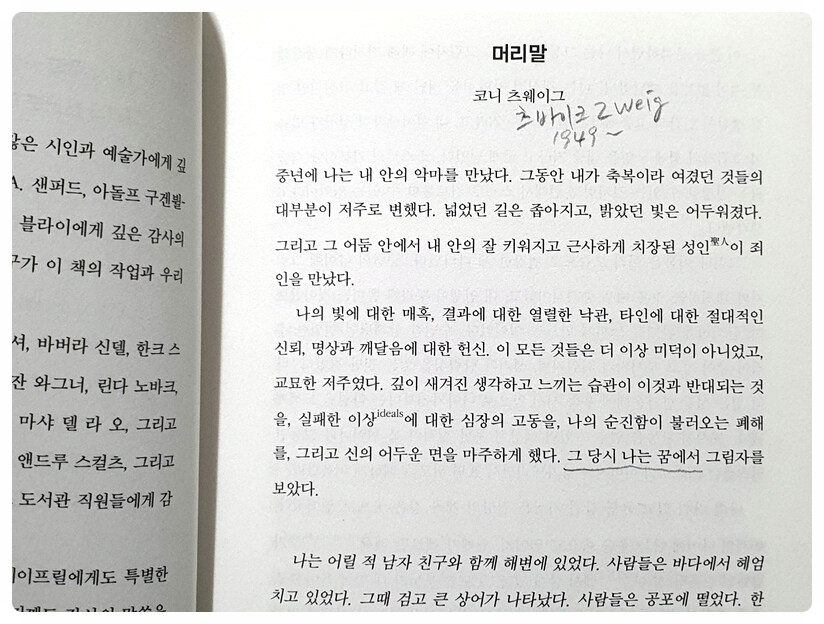 많은 시인과 예술가에게 깊
A. 샌퍼드, 아돌프 구겐뷜-
블라이에게 깊은 감사의
구가 이 책의 작업과 우리
셔, 바버라 신델, 한크 스
잔 와그너, 린다 노바크,
마샤 델 라 오, 그리고
앤드루 스컬츠, 그리고
도서관 직원들에게 감
이프릴에게도 특별한
머리말
코니 츠웨이그
츠바이크 Zweig
1949~
중년에 나는 내 안의 악마를 만났다. 그동안 내가 축복이라 여겼던 것들의
대부분이 저주로 변했다. 넓었던 길은 좁아지고, 밝았던 빛은 어두워졌다.
그리고 그 어둠 안에서 내 안의 잘 키워지고 근사하게 치장된 성인聖人이 죄
인을 만났다.
나의 빛에 대한 매혹, 결과에 대한 열렬한 낙관, 타인에 대한 절대적인
신뢰, 명상과 깨달음에 대한 헌신. 이 모든 것들은 더 이상 미덕이 아니었고,
교묘한 저주였다. 깊이 새겨진 생각하고 느끼는 습관이 이것과 반대되는 것
을, 실패한 이상ideals에 대한 심장의 고동을, 나의 순진함이 불러오는 폐해
를, 그리고 신의 어두운 면을 마주하게 했다. 그 당시 나는 꿈에서 그림자를
보았다.
나는 어릴 적 남자 친구와 함께 해변에 있었다. 사람들은 바다에서 헤엄
치고 있었다. 그때 검고 큰 상어가 나타났다. 사람들은 공포에 떨었다. 한